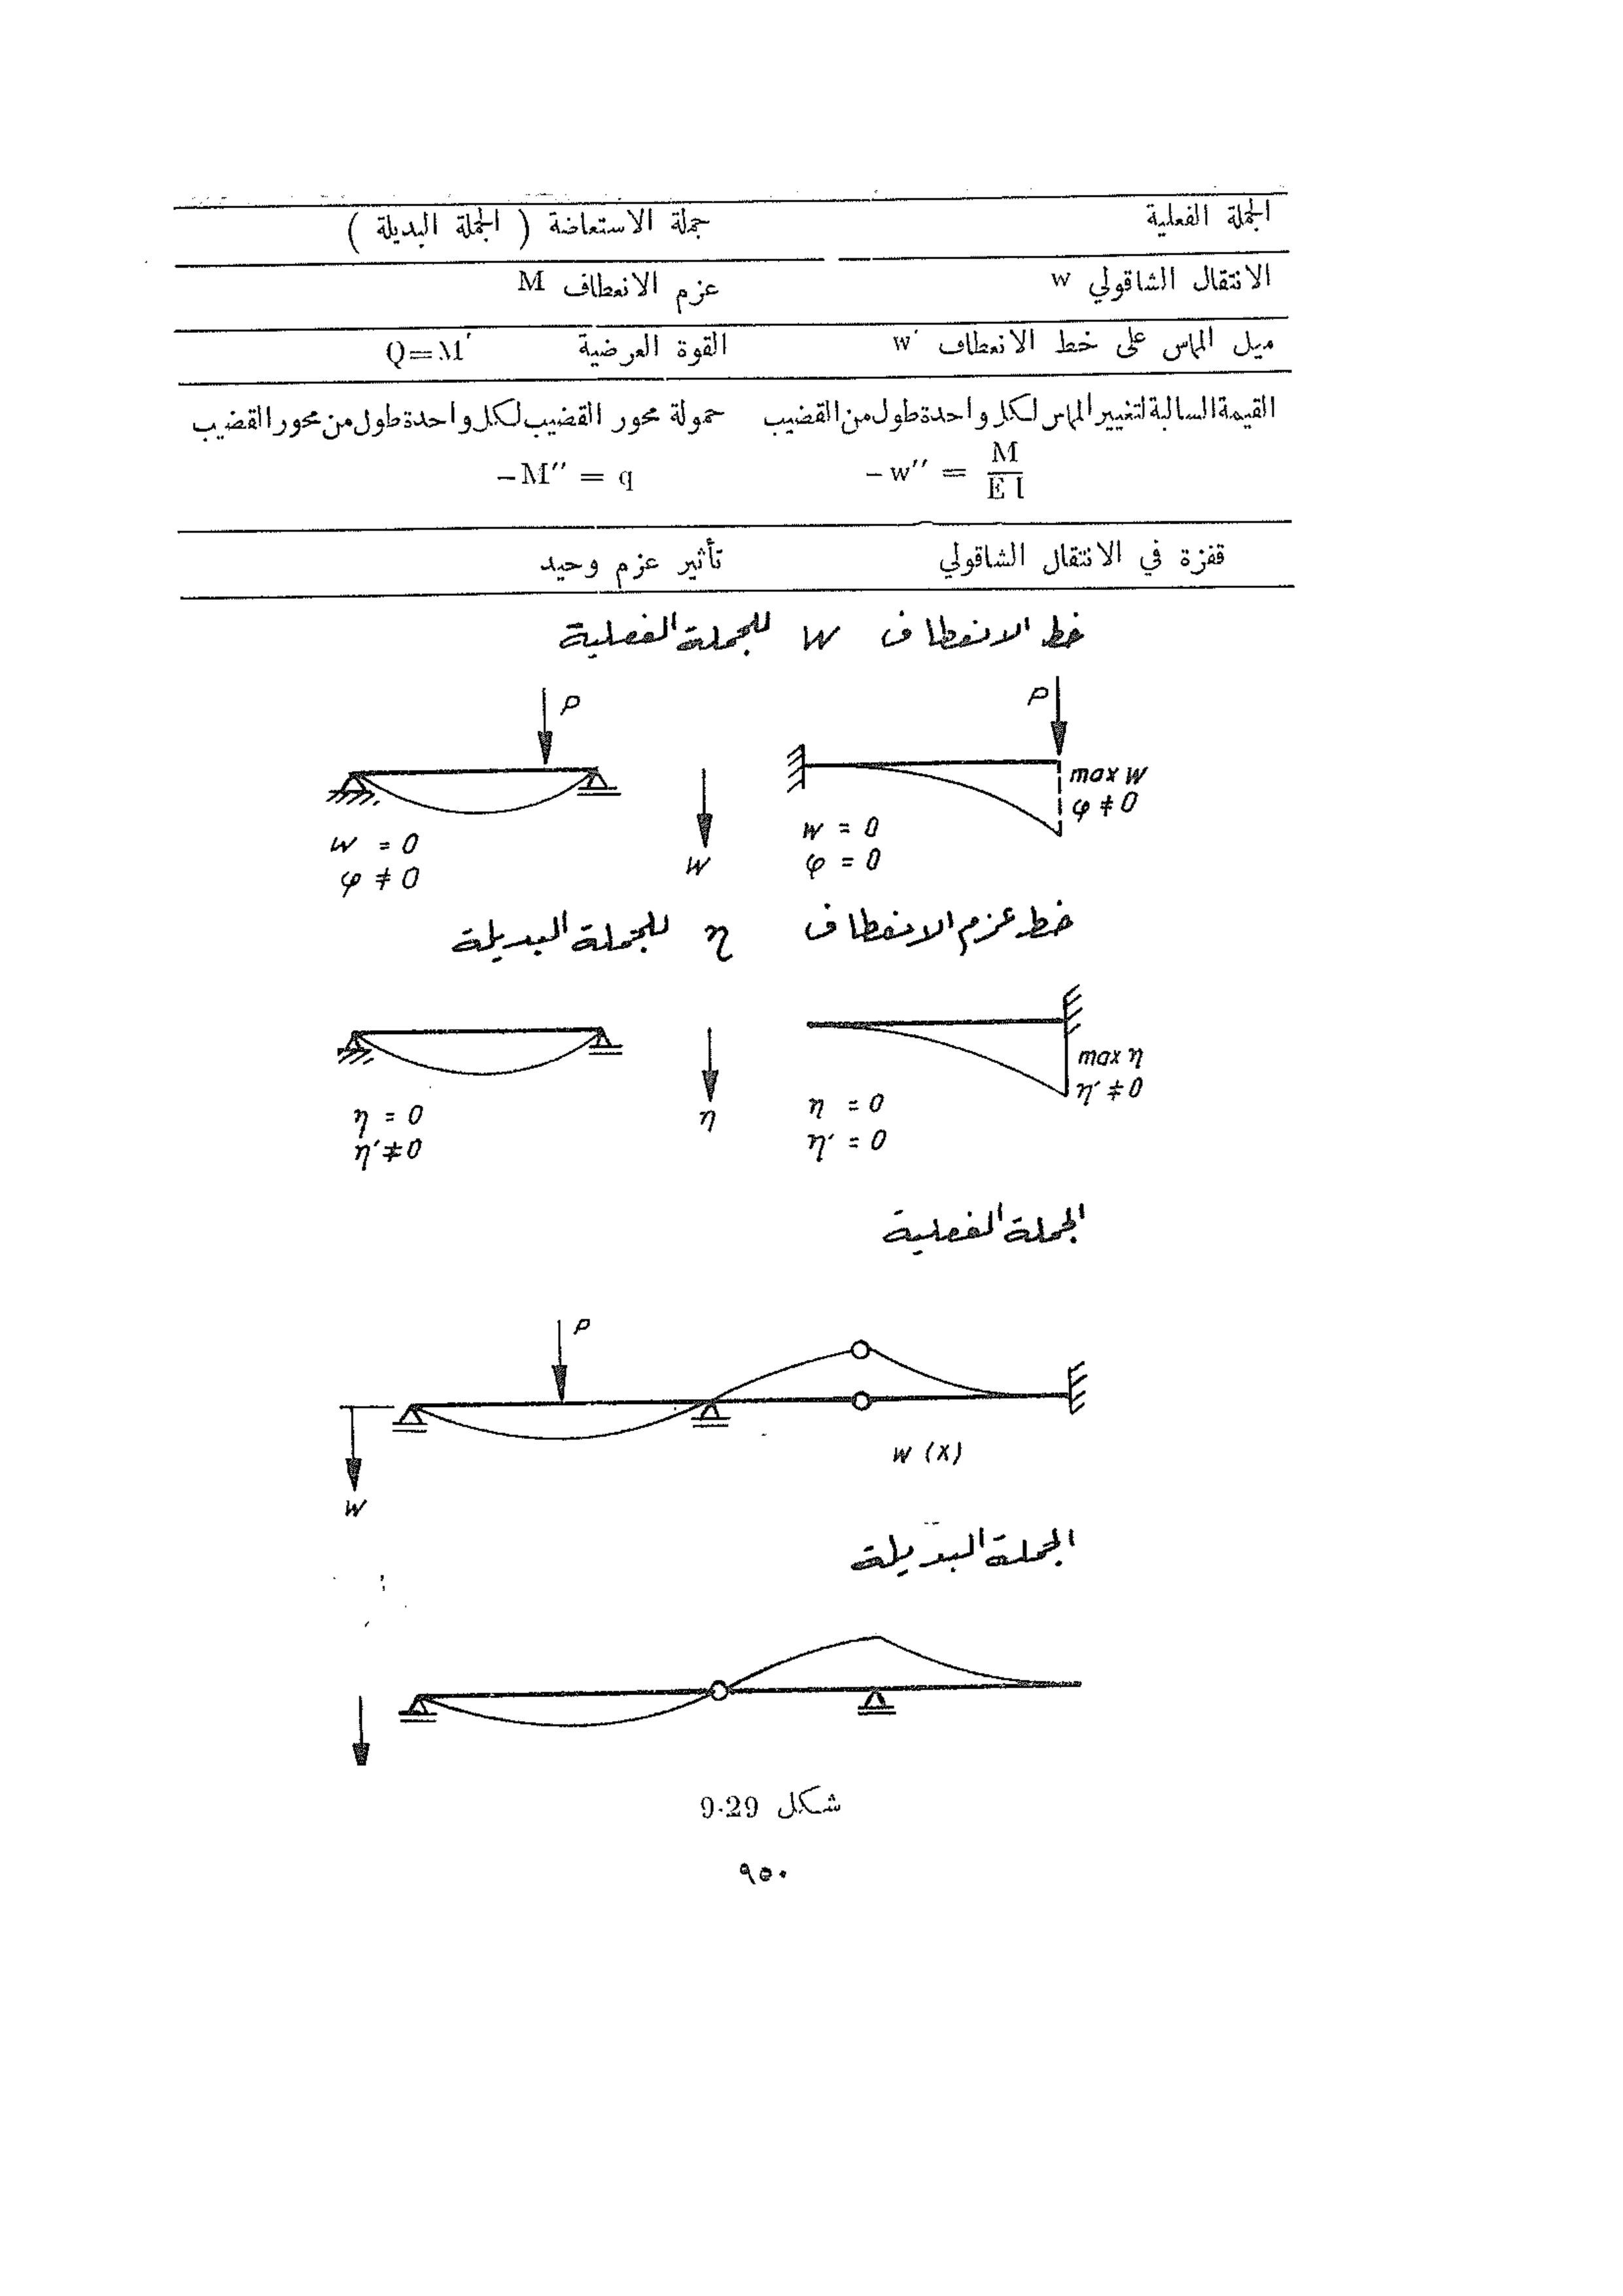 الجملة الفعلية جملة الاستعاضة ( الجملة البديلة )
الانتقال الشاقولي w عزم الانعطاف M
ميل المماس على خط الانعطاف w′ القوة العرضية Q=M′
القيمة السالبة لتغيير المماس لكل واحدة طول من القضيب حمولة محور القضيب لكل واحدة طول من محور القضيب
−w′′ = M/EI −M′′ = q
قفزة في الانتقال الشاقولي تأثير عزم وحيد
خط الانعطاف W للجملة الفعلية
P P
max W
φ ≠ 0
W = 0 W W = 0
φ = 0 φ ≠ 0
خط عزم الانعطاف η للجملة البديلة
max η
η′ ≠ 0
η = 0 η η = 0
η′ = 0 η′ ≠ 0
الجملة الفعلية
P
W (X)
W
الجملة البديلة
شكل 9.29
٩٥٠